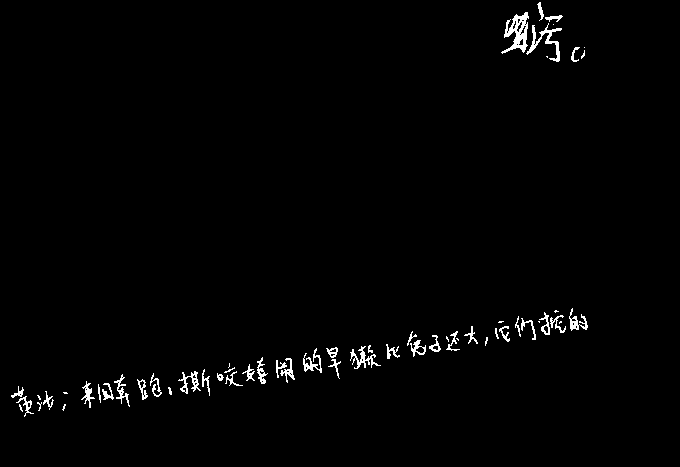 黄沙；来回奔跑、撕咬嬉闹的旱獭比兔子还大，它们挖的